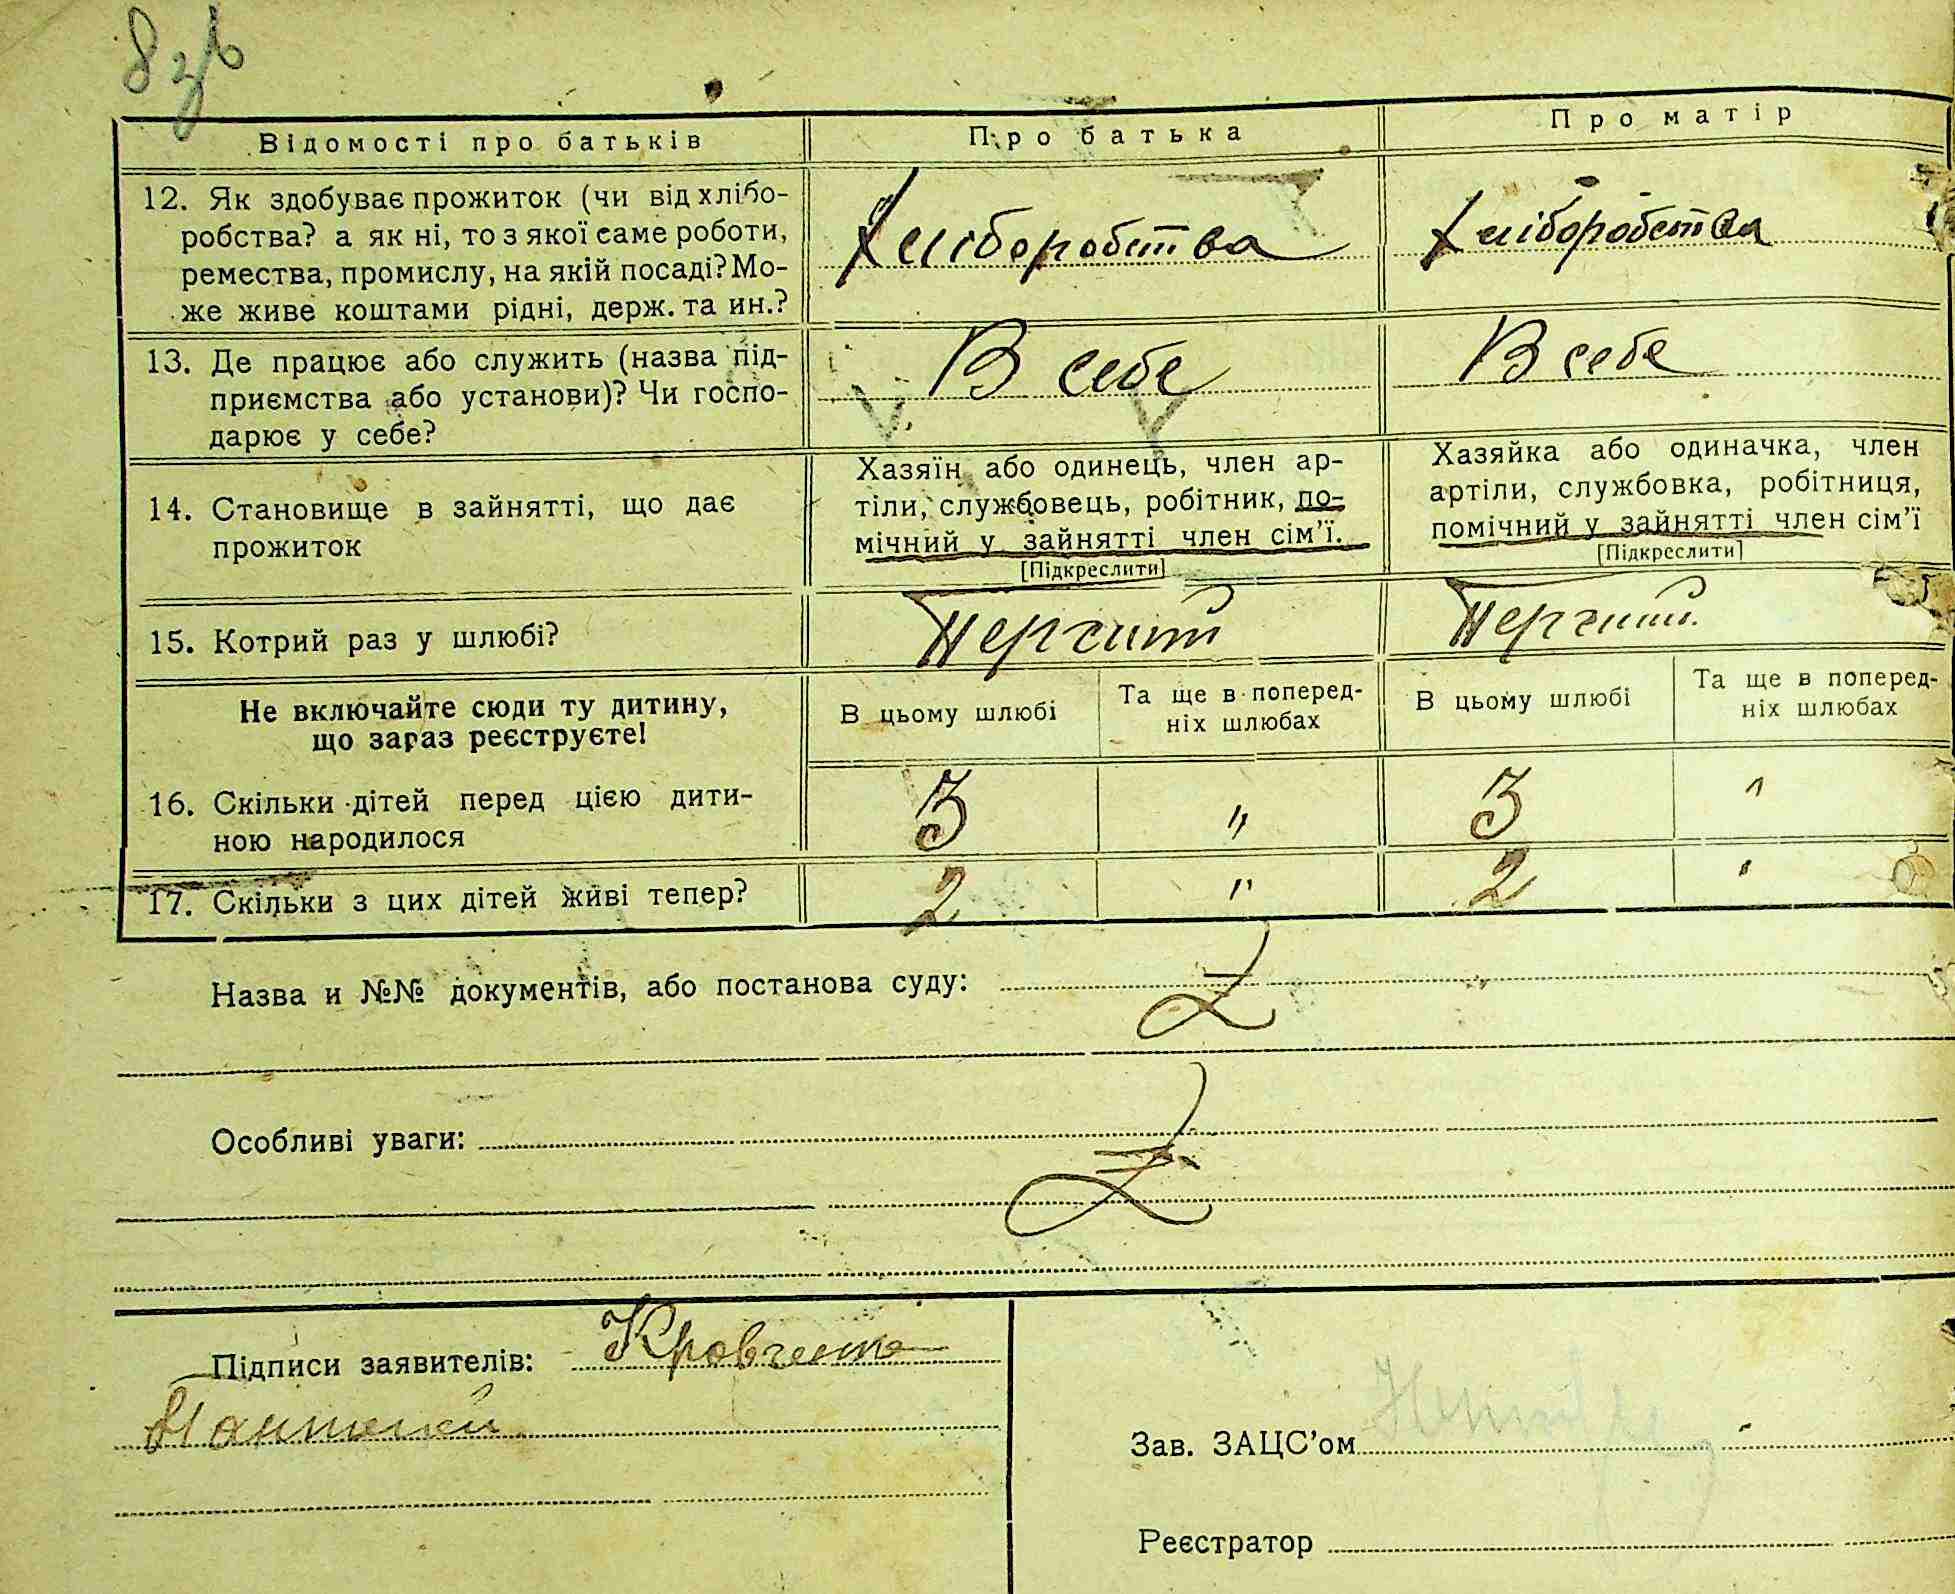 8 зв
Відомості про батьків
Про батька
Про матір
12. Як здобуває прожиток (чи від хлібо-
робства? а як ні, то з якої саме роботи,
ремества, промислу, на якій посаді? Мо-
же живе коштами рідні, держ. та ин.?
Хліборобства
Хліборобства
13. Де працює або служить (назва під-
приємства або установи)? Чи госпо-
дарює у себе?
В себе
В себе
14. Становище в зайнятті, що дає
прожиток
Хазяїн або одинець, член ар-
тіли, службовець, робітник, по-
мічний у зайнятті член сім'ї.
[Підкреслити]
Хазяйка або одиначка, член
артіли, службовка, робітниця,
помічний у зайнятті член сім'ї
[Підкреслити]
15. Котрий раз у шлюбі?
Не включайте сюди ту дитину,
що зараз реєструєте!
В цьому шлюбі
Та ще в поперед-
ніх шлюбах
В цьому шлюбі
Та ще в поперед-
ніх шлюбах
16. Скільки дітей перед цією дити-
ною народилося
3 " 3 "
17. Скільки з цих дітей живі тепер?
2 " 2 "
Назва и №№ документів, або постанова суду:
Особливі уваги:
Підписи заявителів: Кравченко
Пантелей
Зав. ЗАЦС'ом
Реєстратор